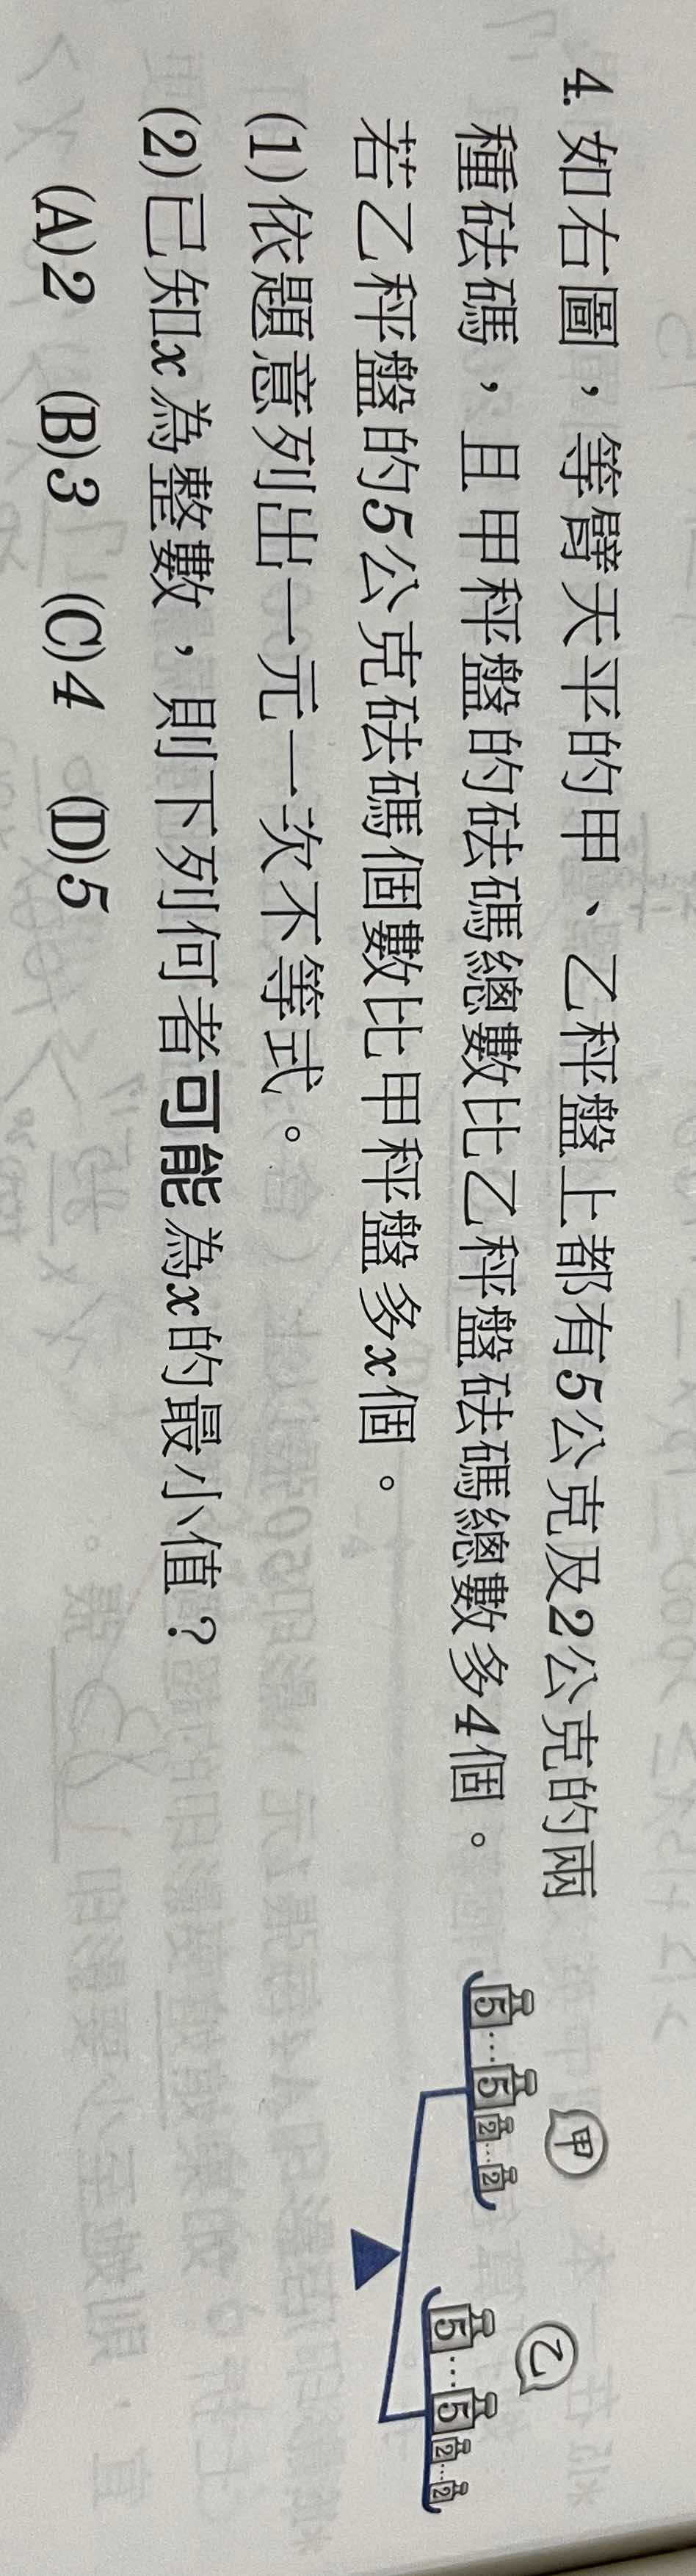 4. 如右圖，等臂天平的甲、乙秤盤上都有5公克及2公克的兩
種砝碼，且甲秤盤的砝碼總數比乙秤盤砝碼總數多4個。
若乙秤盤的5公克砝碼個數比甲秤盤多x個。
(1)依題意列出一元一次不等式。
(2)已知x為整數，則下列何者可能為x的最小值？
(A)2 (B)3 (C)4 (D)5
甲
5…5 2…2
乙
5…5 2…2